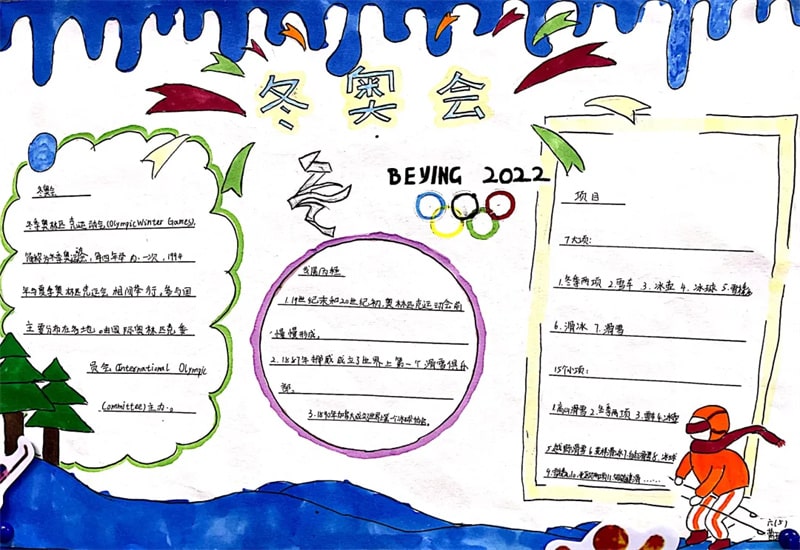 冬奥会
BEIJING 2022
冬奥会
冬季奥林匹克运动会(Olympic Winter Games),
简称为冬季奥运会,每四年举办一次,1994
年与夏季奥林匹克运会相间举行,参与国
主要分布在各地。由国际奥林匹克委
员会(International Olympic
Committee)主办。
发展历程
1.19世纪末和20世纪初,奥林匹克运动会前
慢慢形成。
2.1887年挪威成立了世界上第一个滑雪俱乐
部。
3.1890年加拿大成立世界上第一个冰球协会。
项目
7大项:
1.冬季两项 2.雪车 3.冰壶 4.冰球 5.雪橇
6.滑冰 7.滑雪
15个小项:
1.高山滑雪 2.冬季两项 3.雪车 4.冰壶
5.越野滑雪 6.花样滑冰 7.自由滑雪 8.冰球
9.雪橇 10.北欧两项 11.短道速滑……
六(5)